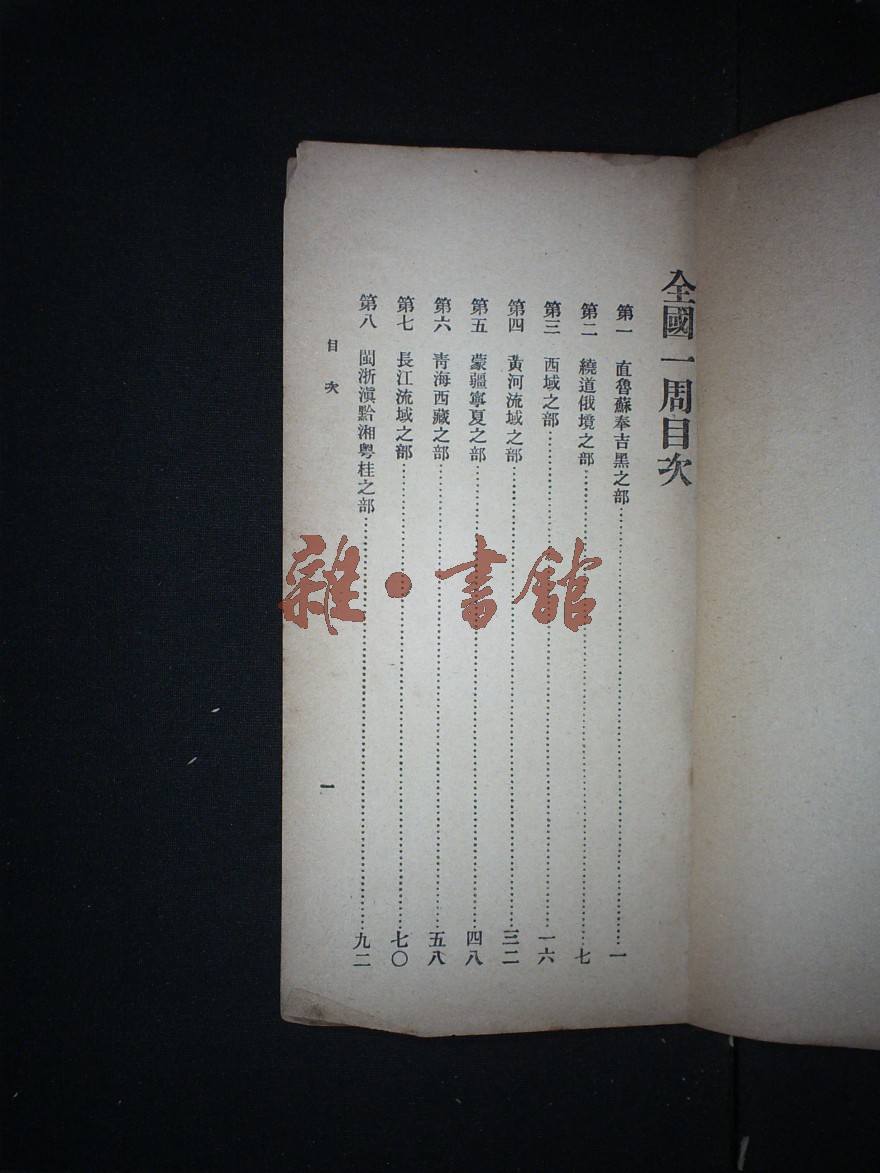 全國一周目次
第一　直魯蘇奉吉黑之部……一
第二　繞道俄境之部……七
第三　西域之部……一六
第四　黃河流域之部……三二
第五　蒙疆寧夏之部……四八
第六　靑海西藏之部……五八
第七　長江流域之部……七〇
第八　閩浙滇黔湘粤桂之部……九二
目次
一
雜·書館